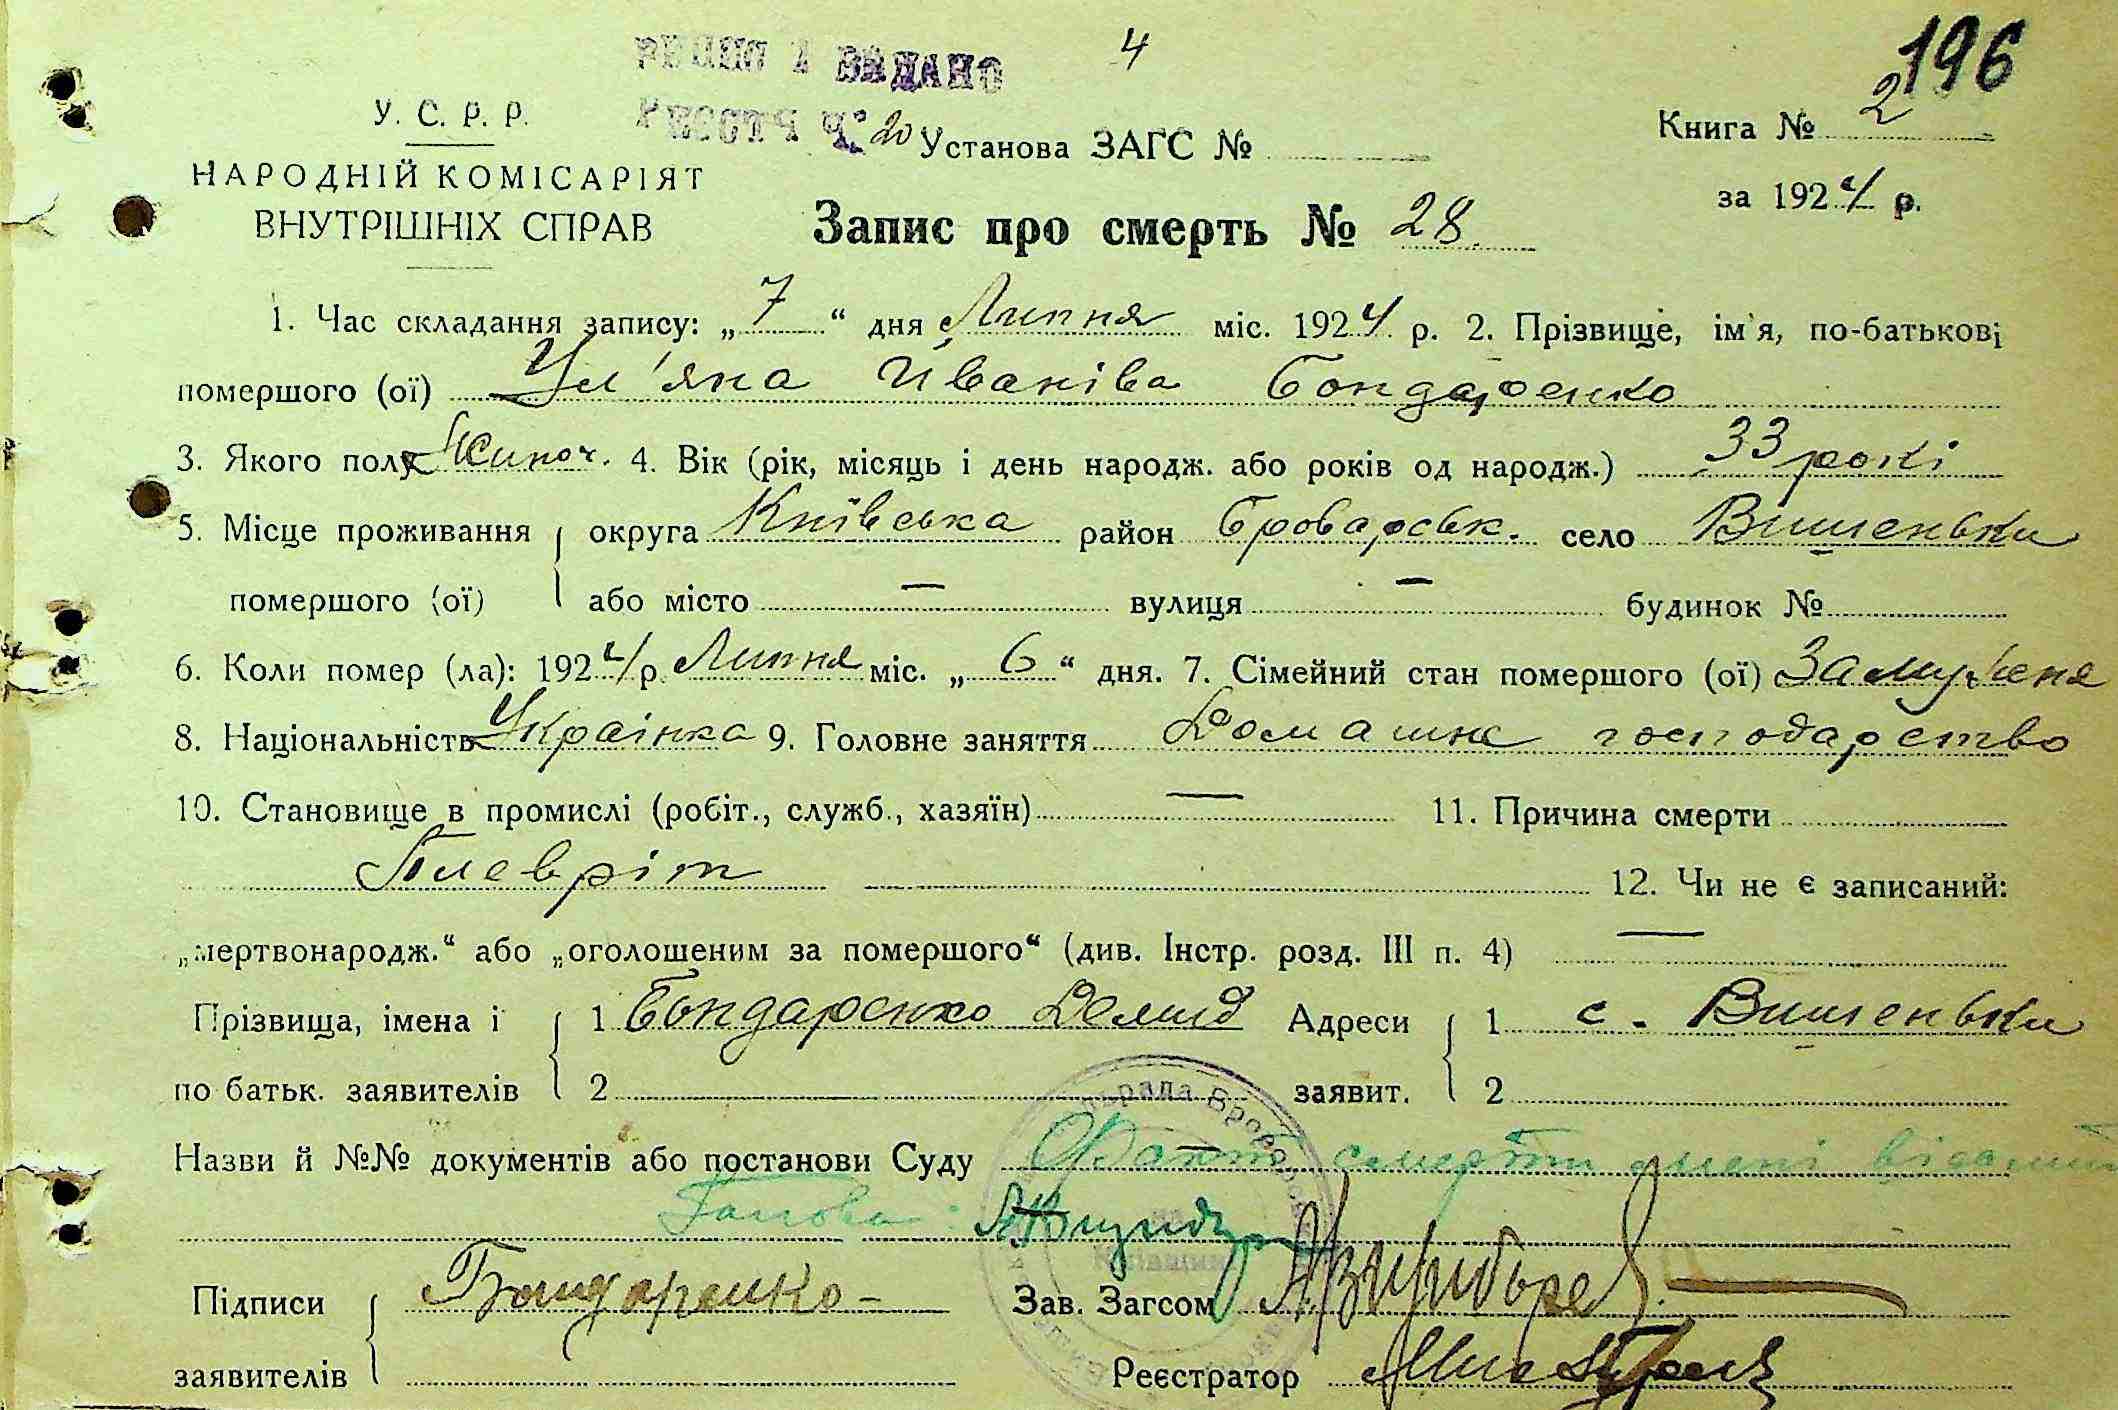 4
196
У. С. Р. Р.
ВИДАНО
20 Установа ЗАГС №
Книга № 2
НАРОДНІЙ КОМІСАРІЯТ
ВНУТРІШНІХ СПРАВ
за 1924 р.
Запис про смерть № 28
1. Час складання запису: „7“ дня Липня міс. 1924 р. 2. Прізвище, ім'я, по-батькові
помершого (ої) Ул'яна Иванівa Бондаренко
3. Якого полу Жиноч. 4. Вік (рік, місяць і день народж. або років од народж.) 33 рокі
5. Місце проживання округа Київська район Броварськ. село Вишеньки
помершого (ої) або місто — вулиця — будинок №
6. Коли помер (ла): 1924 р. Липня міс. „6“ дня. 7. Сімейний стан помершого (ої) Замужня
8. Національність Украінка 9. Головне заняття Домашнє господарство
10. Становище в промислі (робіт., служб., хазяїн) — 11. Причина смерти
Плевріт 12. Чи не є записаний:
„мертвонародж.“ або „оголошеним за помершого“ (див. Інстр. розд. III п. 4) —
Прізвища, імена і 1 Бондаренко Демид Адреси 1 с. Вишеньки
по батьк. заявителів 2 заявит. 2
Назви й №№ документів або постанови Суду Факт смерти мені відомий
Голова:
Підписи Бондаренко Зав. Загсом
заявителів Реєстратор